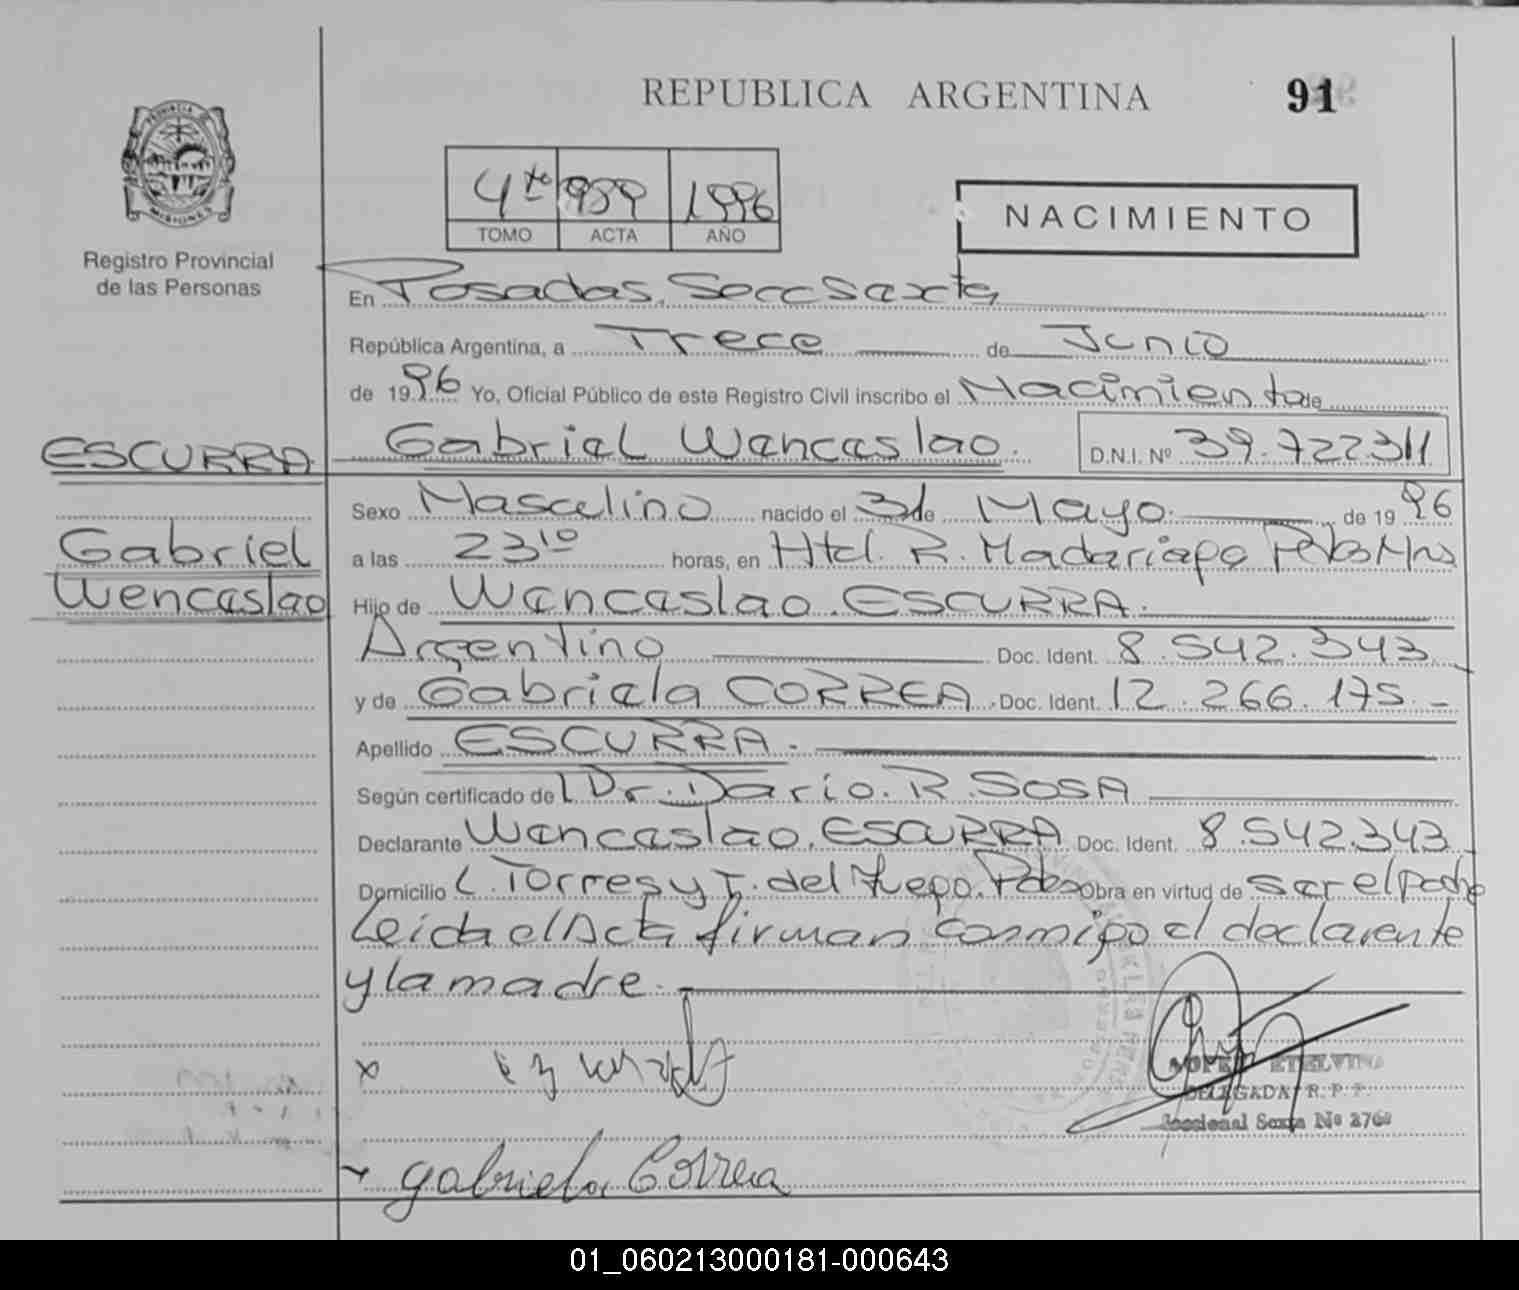 REPUBLICA ARGENTINA
91
PROVINCIA DE
MISIONES
Registro Provincial
de las Personas
4to 989 1996
TOMO ACTA AÑO
NACIMIENTO
En Posadas, Secc Sexta
República Argentina, a Trece de Junio
de 1996 Yo, Oficial Público de este Registro Civil inscribo el Nacimiento de
ESCURRA Gabriel Wencaslao. D.N.I. Nº 39.722311
Sexo Masculino nacido el 31 de Mayo de 1996
Gabriel a las 23 10 horas, en Htal. R. Madariaga Pdas Mns
Wencaslao Hijo de Wencaslao ESCURRA.
Argentino Doc. Ident. 8.542.343
y de Gabriela CORREA. Doc. Ident. 12.266.175.-
Apellido ESCURRA.
Según certificado del Dr. Dario. R. SOSA
Declarante Wencaslao. ESCURRA Doc. Ident. 8.542.343
Domicilio L. Torres y T. del Fuego. Pdas Obra en virtud de ser el padre
Leida el Acta firman conmigo el declarente
y la madre.
x
ETELVINA
DELEGADA R. P. P.
Seccional Sexta Nº
Gabriela Correa
01_060213000181-000643